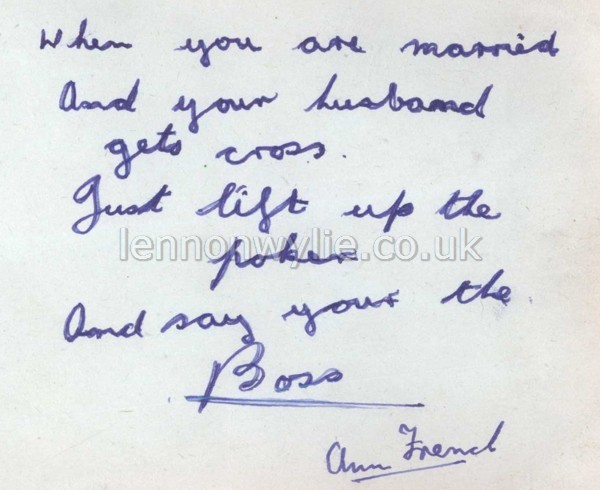 When you are married
And your husband
gets cross.
Just lift up the
lennonwylie.co.uk
poker
And say your the
Boss
Ann French